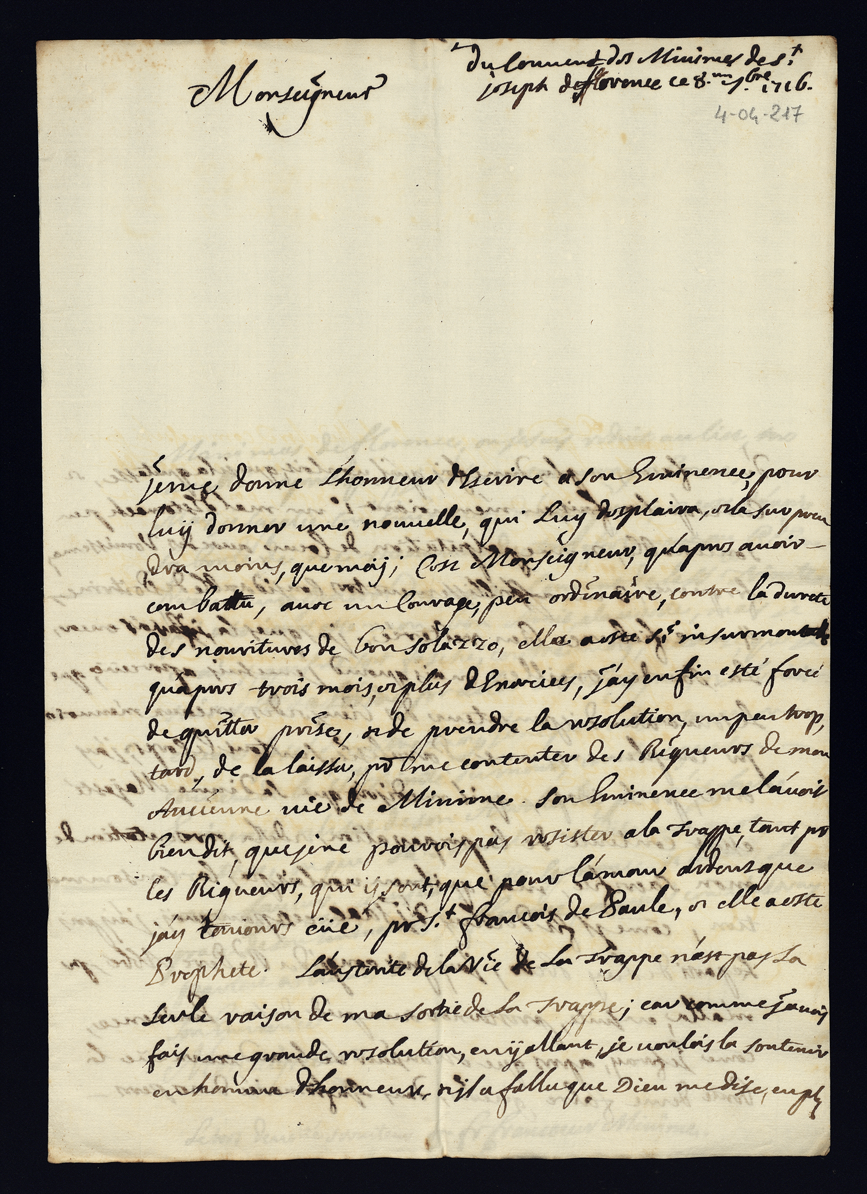 Du Couvent des Minimes de St
joseph de florence ce 8.me 7.bre 1716.
Monseigneur
4-04-217
je me donne L'honneur d'Escrire a Son Eminence, pour
luy donner une nouvelle, qui Luy desplaira, et la surpren
dra moins, que moy; C'est Monseigneur, qu'apres avoir
combattu, avec un Courage, peu ordinaire, contre la dureté
des nouritures de bonsolazzo, elle a esté sy insurmontable
qu'apres trois mois, et plus d'Exercices, j'ay enfin esté forcé
de quitter prises, et de prendre la resolution, un peu trop,
tard, de la laisser, pr me contenter des Rigueurs de mon
Ancienne vie de Minime. Son Eminence me l'avoit
bien dit, que je ne pouvois pas resister a la Trappe, tant pr
les Rigueurs, qui y sont, que pour l'amour ardent que
j'ay toujours eüe, pr St françois de Paule, et elle a esté
Prophete. L'austerité de la Vie de La Trappe n'est pas La
Seule raison de ma sortie de La Trappe; car comme j'avois
fais une grande resolution, en y allant, je voulois la soutenir
en homme d'honneur, et il a fallu que Dieu me dise, en